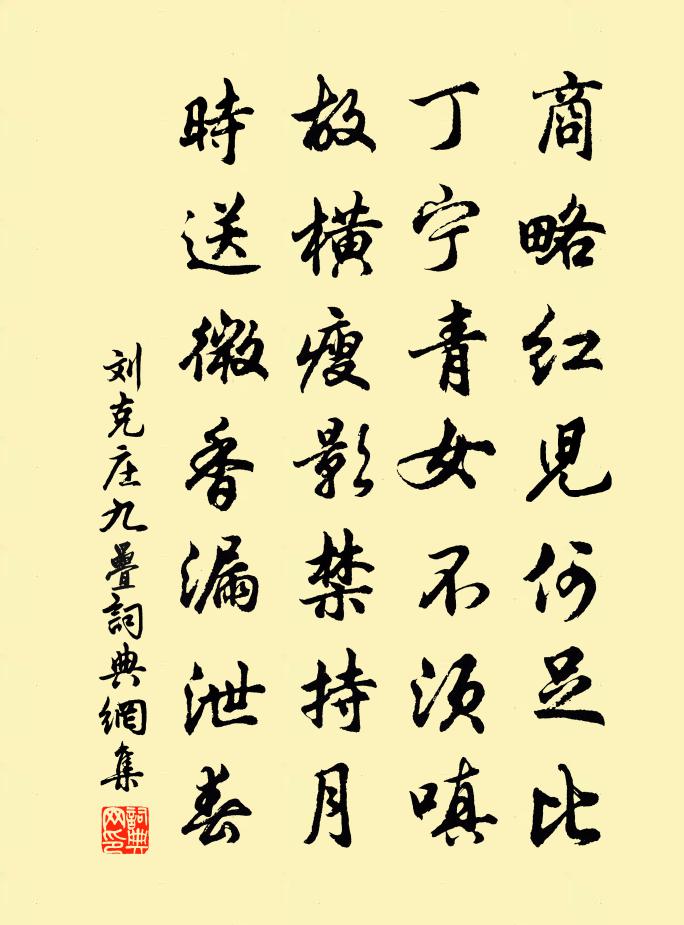 商略红児何足比
丁宁青女不须嗔
故横瘦影禁持月
時送微香漏泄春
刘克庄九疊詞典網集
詞典网印